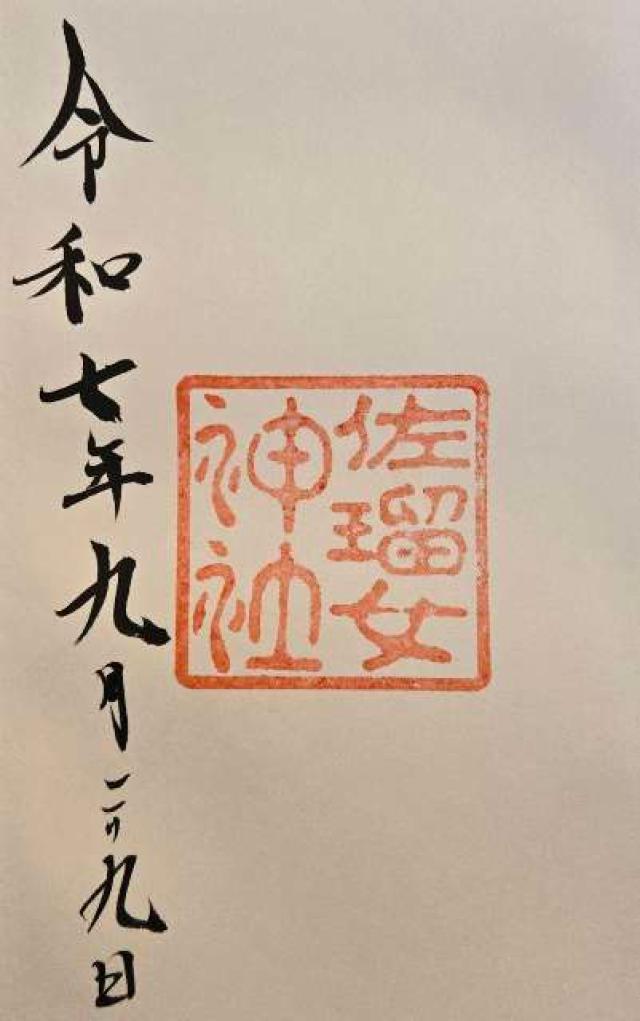 佐瑠女
神社
令和七年九月二十九日